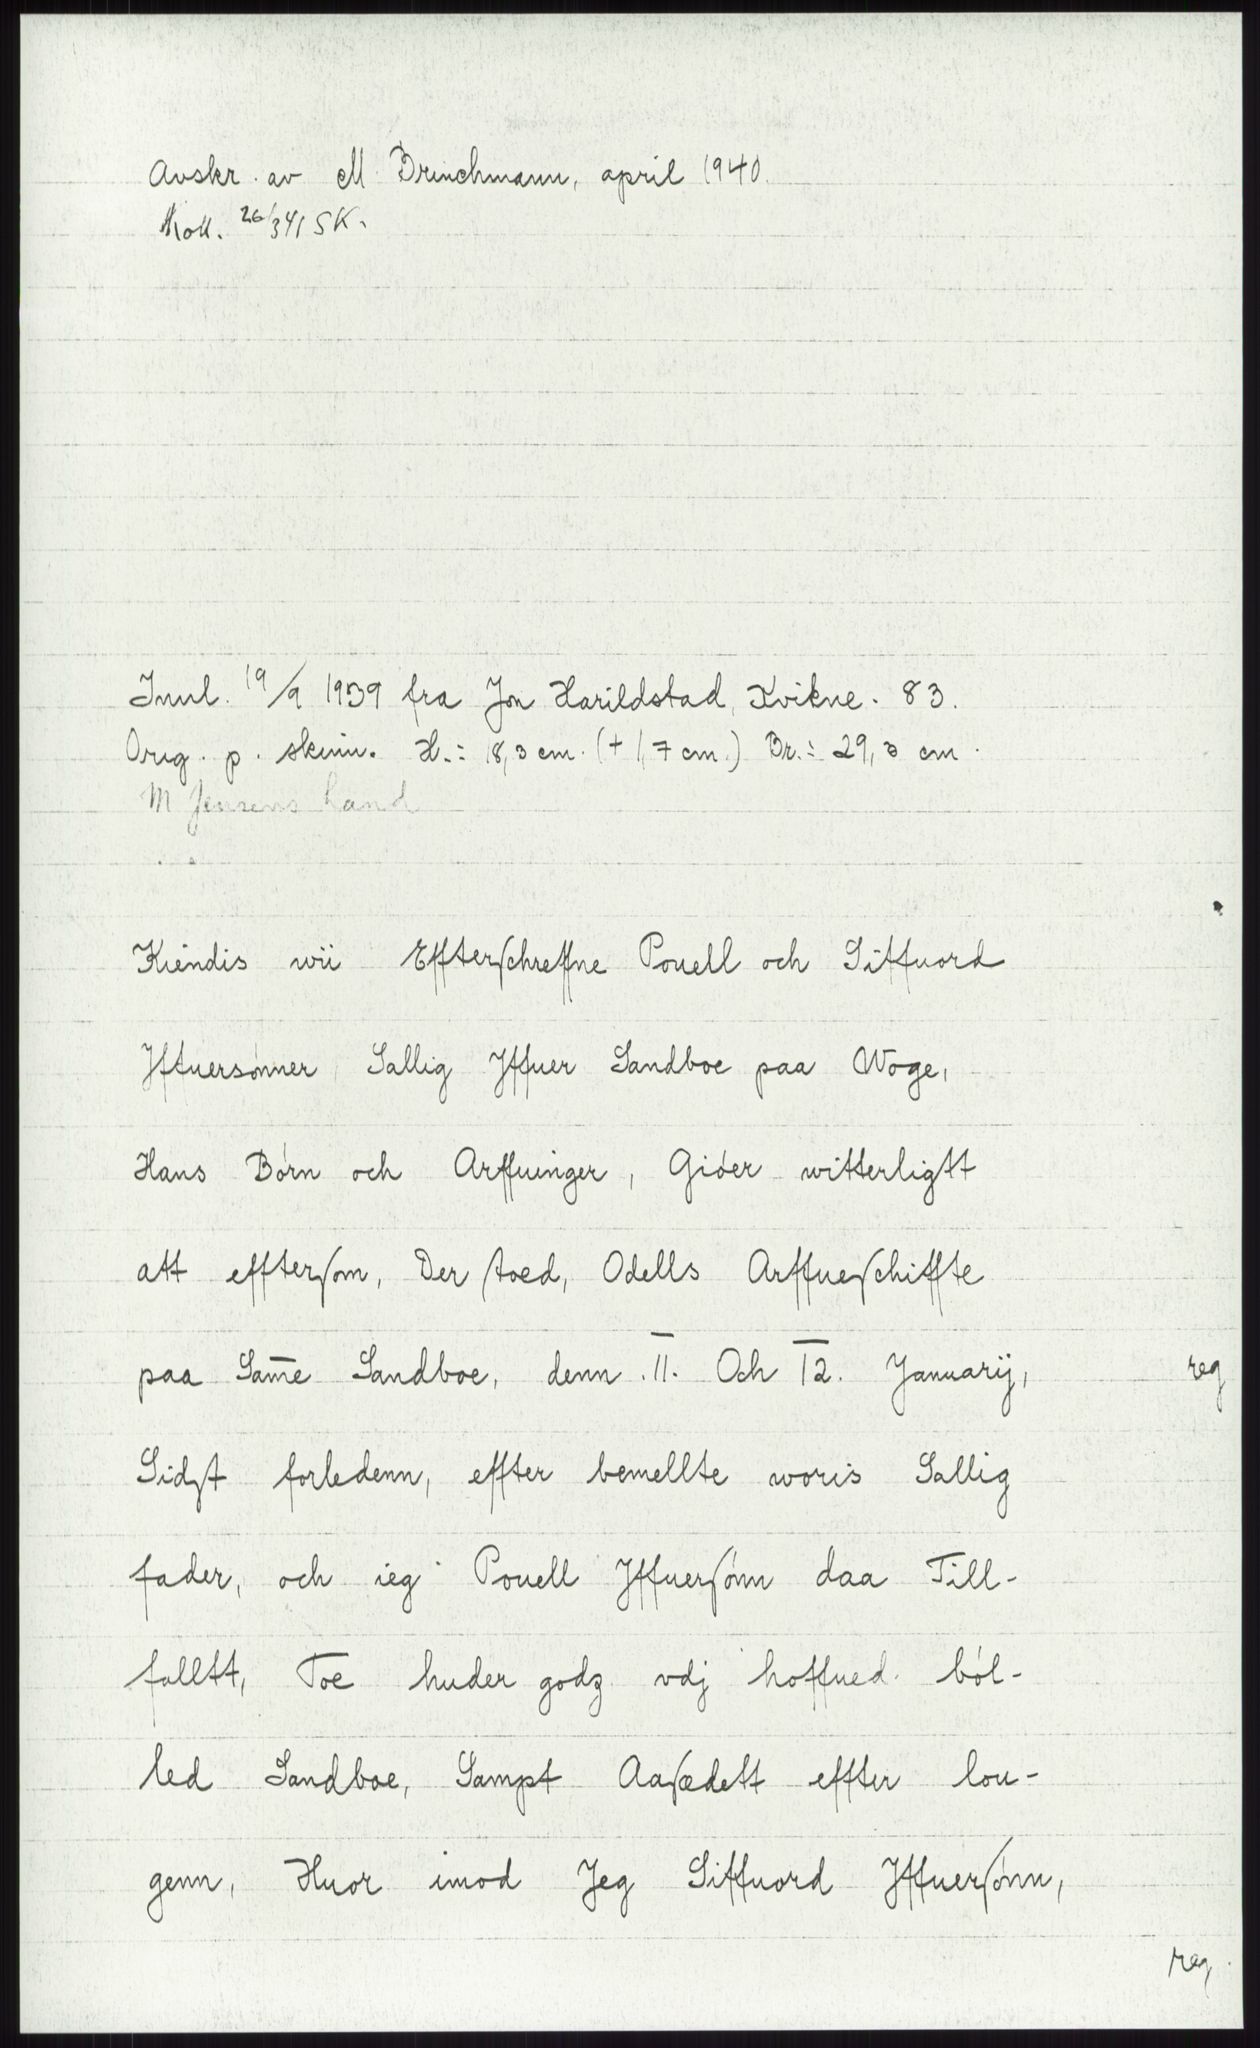 Avskr. av M. Brinchmann, april 1940.
Koll. 26/3 41 SK.
Innl. 19/9 1939 fra Jon Harildstad, Kvikne. 83.
Orig. p. skinn. H.: 18,3 cm. (+ 1,7 cm.) Br.: 29,3 cm.
M Jensens hand
Kiendis wii Effterſchreffne Pouell och Siffuord
Iffuersønner, Sallig Iffuer Sandboe paa Woge,
Hans Børn och Arffuinger, Giøer witterligtt
att effterſom, Der ſtoed, Odells Arffueſchiffte
paa Sam̄e Sandboe, denn .11. Och 12. Januarij,
reg
Sidzt forledenn, effter bemellte woris Sallig
fader, och ieg Pouell Iffuerſønn daa Till-
falltt, Toe huder godz vdj hoffued bøl-
led Sandboe, Sampt Aaſædett effter lou-
genn, Huor imod Jeg Siffuord Iffuerſønn,
reg.